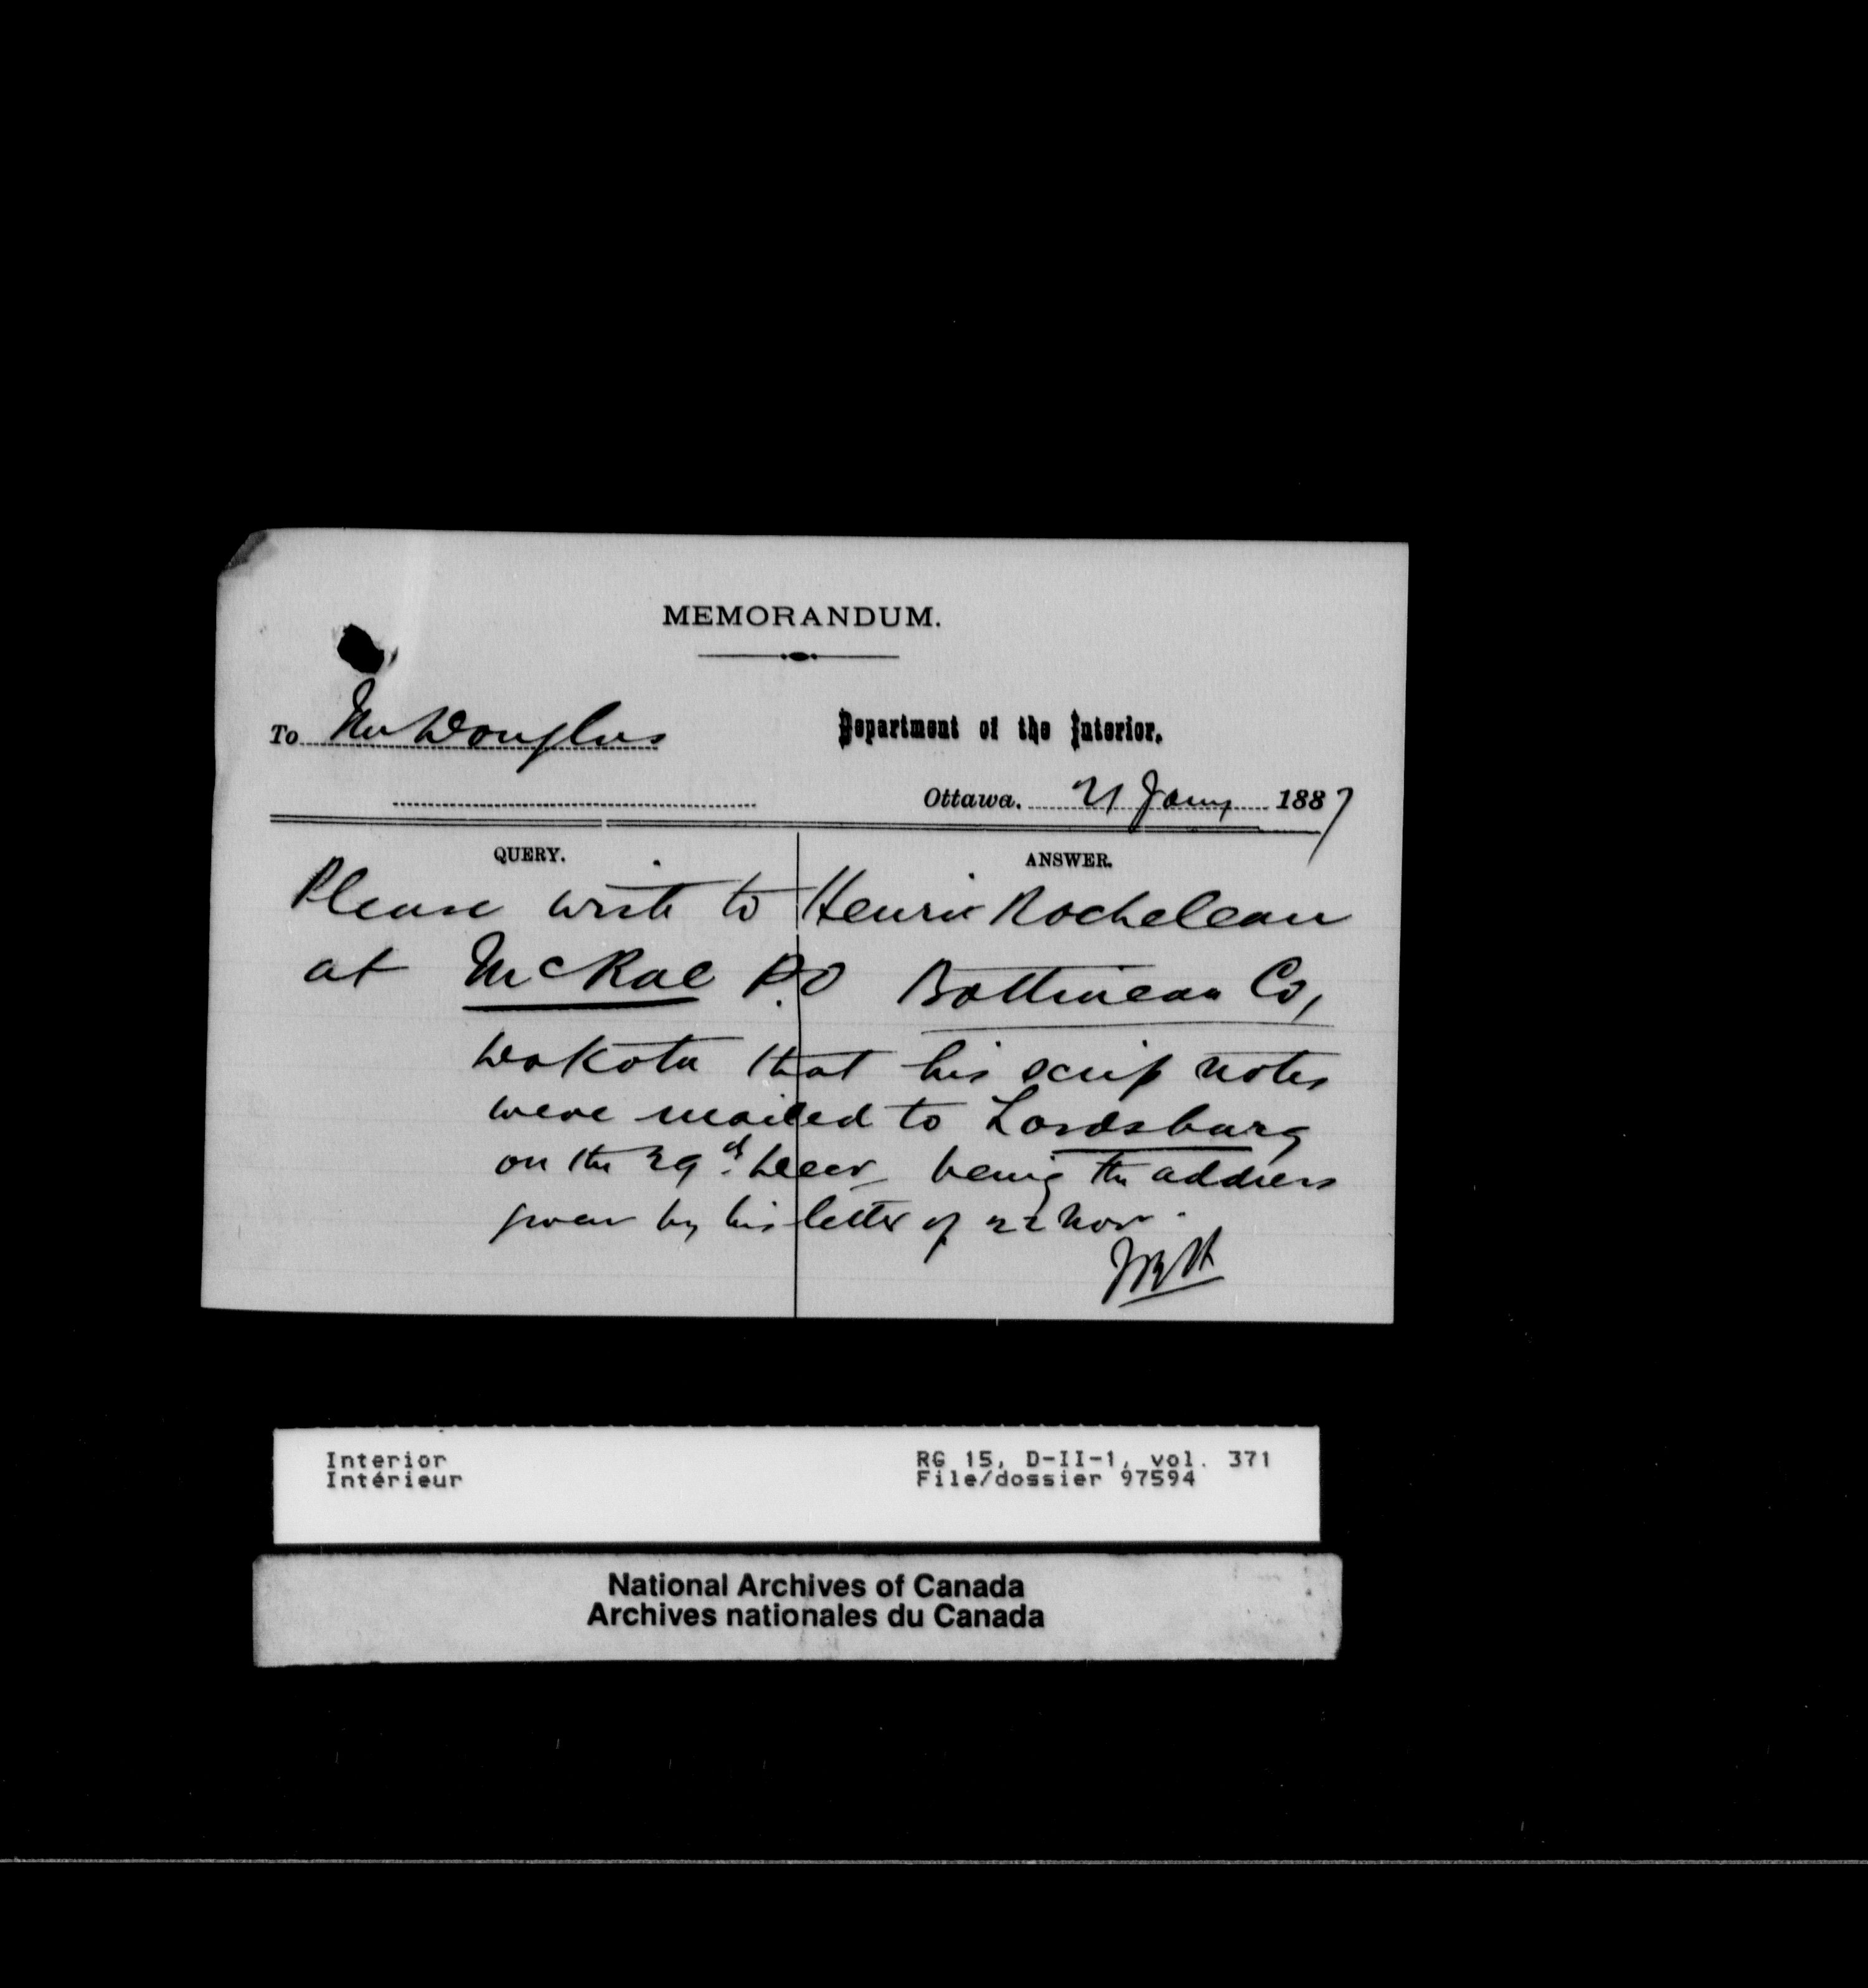 MEMORANDUM.
To Mr Douglas
Department of the Interior.
Ottawa. 21 Jany 1887
QUERY. ANSWER.
Please write to Henri Rocheleau
at McRae P.O Bottineau Co,
Dakota that his scrip notes
were mailed to Lordsburg
on the 29th Decr being the address
given by his letter of 22 Nov.
Interior
Intérieur
RG 15, D-II-1, vol. 371
File/dossier 97594
National Archives of Canada
Archives nationales du Canada